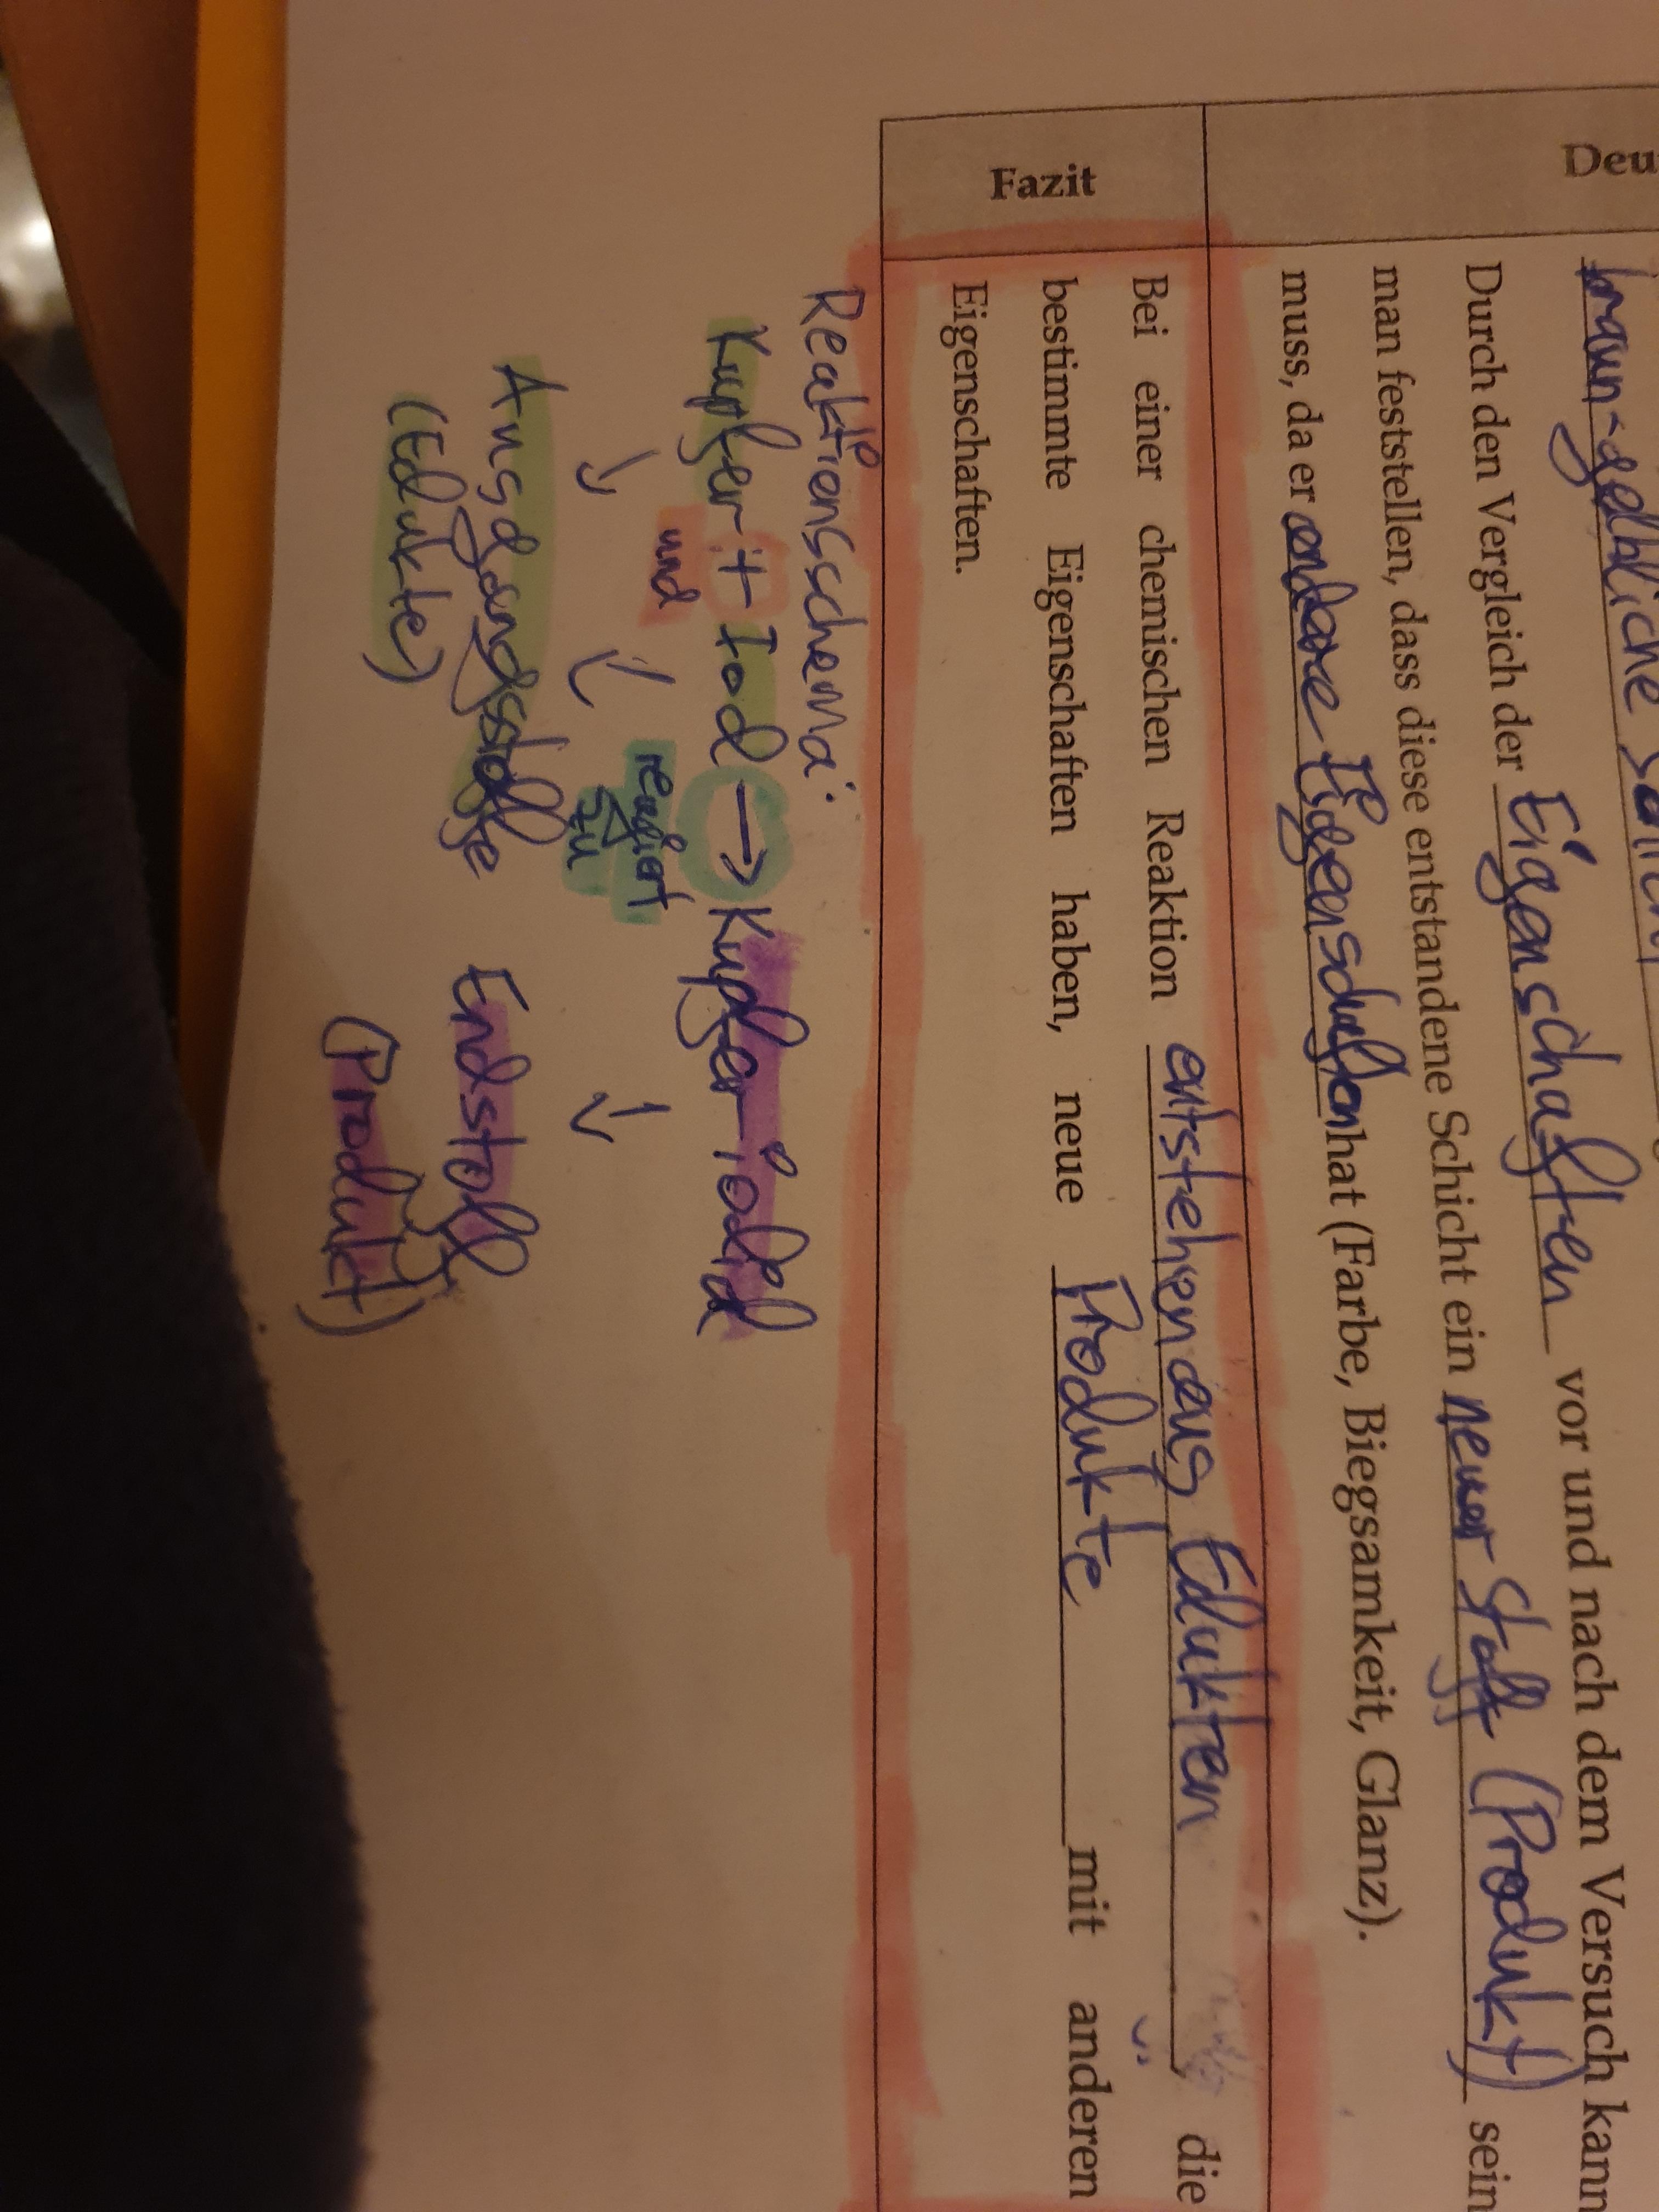 Deu
braun-gelbliche
Durch den Vergleich der Eigenschaften vor und nach dem Versuch kann
man feststellen, dass diese entstandene Schicht ein neuer Stoff (Produkt) sein
muss, da er andere Eigenschaften hat (Farbe, Biegsamkeit, Glanz).
Fazit
Bei einer chemischen Reaktion entstehen aus Edukten, die
bestimmte Eigenschaften haben, neue Produkte mit anderen
Eigenschaften.
Reaktionsschema:
Kupfer + Iod → Kupferiodid
und reagiert zu
Ausgangsstoffe Endstoff
(Edukte) (Produkt)